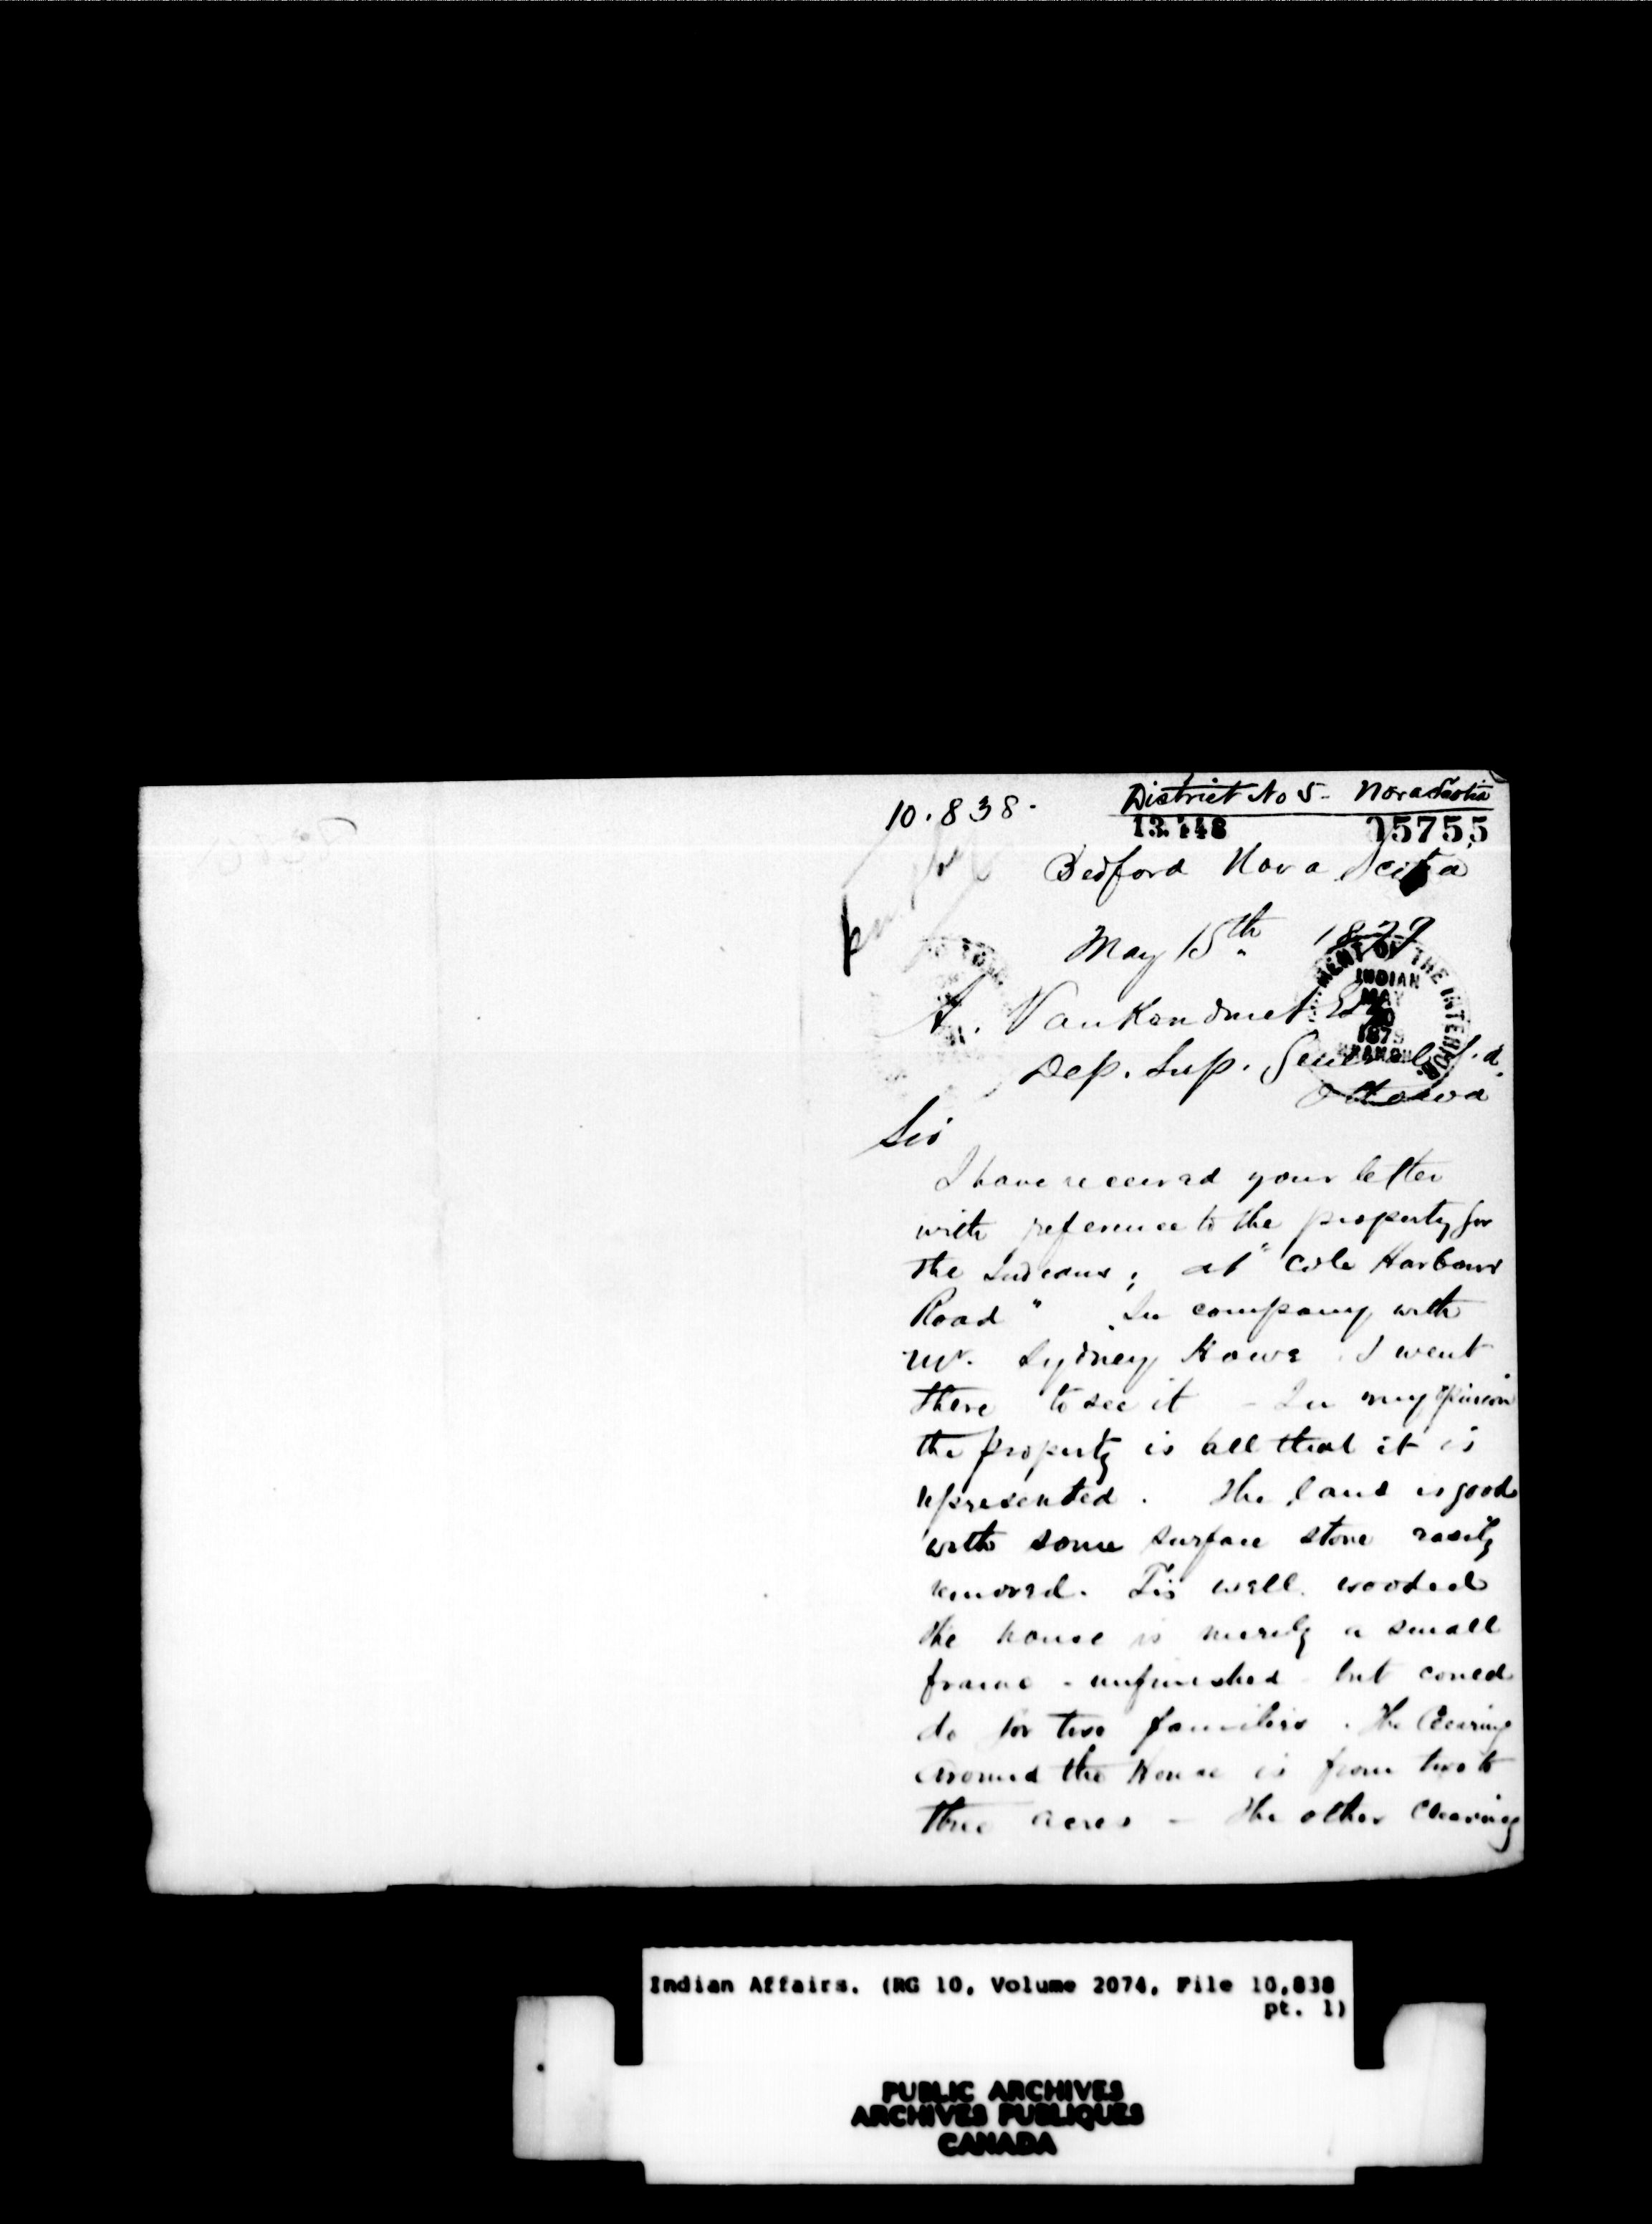 10.838.
District No 5- Nova Scotia
13.448
15755
Bedford Nova Scotia
May 15th 1879
DEPARTMENT OF THE INTERIOR
INDIAN
MAY
20
1879
BRANCH
A. VanKoughnet Esq
Dep. Sup. General I. A.
Ottawa
Sir
I have received your letter
with reference to the property for
the Indians; at "Cole Harbour
Road" In company with
Mr. Sydney Howe I went
there to see it - In my opinion
the property is all that it is
represented. The land is good
with some surface stone easily
removed. Tis well wooded
the house is merely a small
frame - unfinished - but could
do for two families. The Clearing
around the House is from two to
three acres - The other Clearing
Indian Affairs. (RG 10, Volume 2074, File 10,838
pt. 1)
PUBLIC ARCHIVES
ARCHIVES PUBLIQUES
CANADA